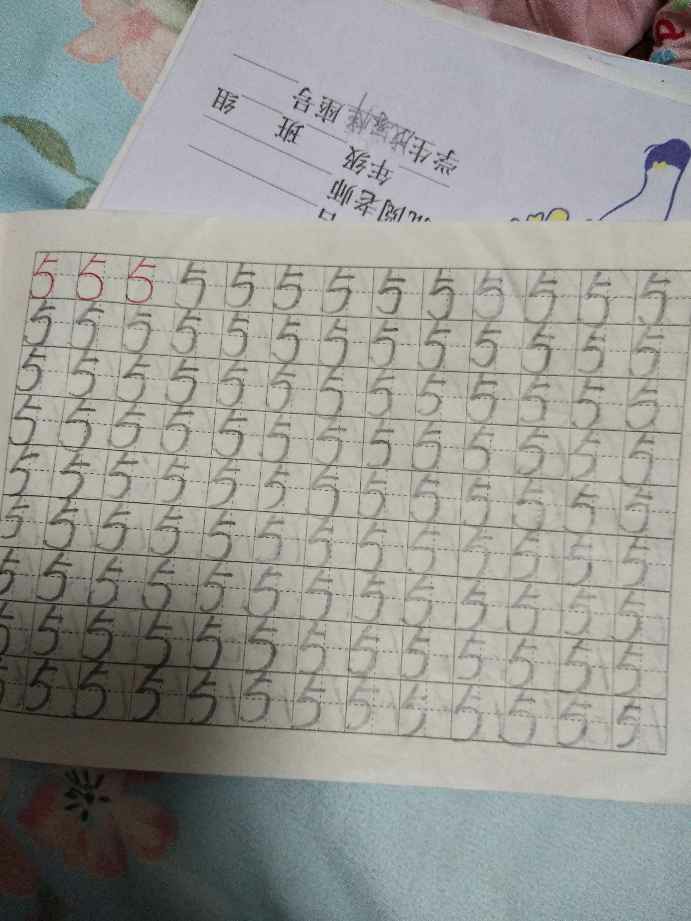 学生 座号
年级 班 组
阅老师
日
5 5 5 5 5 5 5 5 5 5 5 5 5
5 5 5 5 5 5 5 5 5 5 5 5 5
5 5 5 5 5 5 5 5 5 5 5 5 5
5 5 5 5 5 5 5 5 5 5 5 5 5
5 5 5 5 5 5 5 5 5 5 5 5 5
5 5 5 5 5 5 5 5 5 5 5 5 5
5 5 5 5 5 5 5 5 5 5 5 5 5
5 5 5 5 5 5 5 5 5 5 5 5 5
5 5 5 5 5 5 5 5 5 5 5 5 5